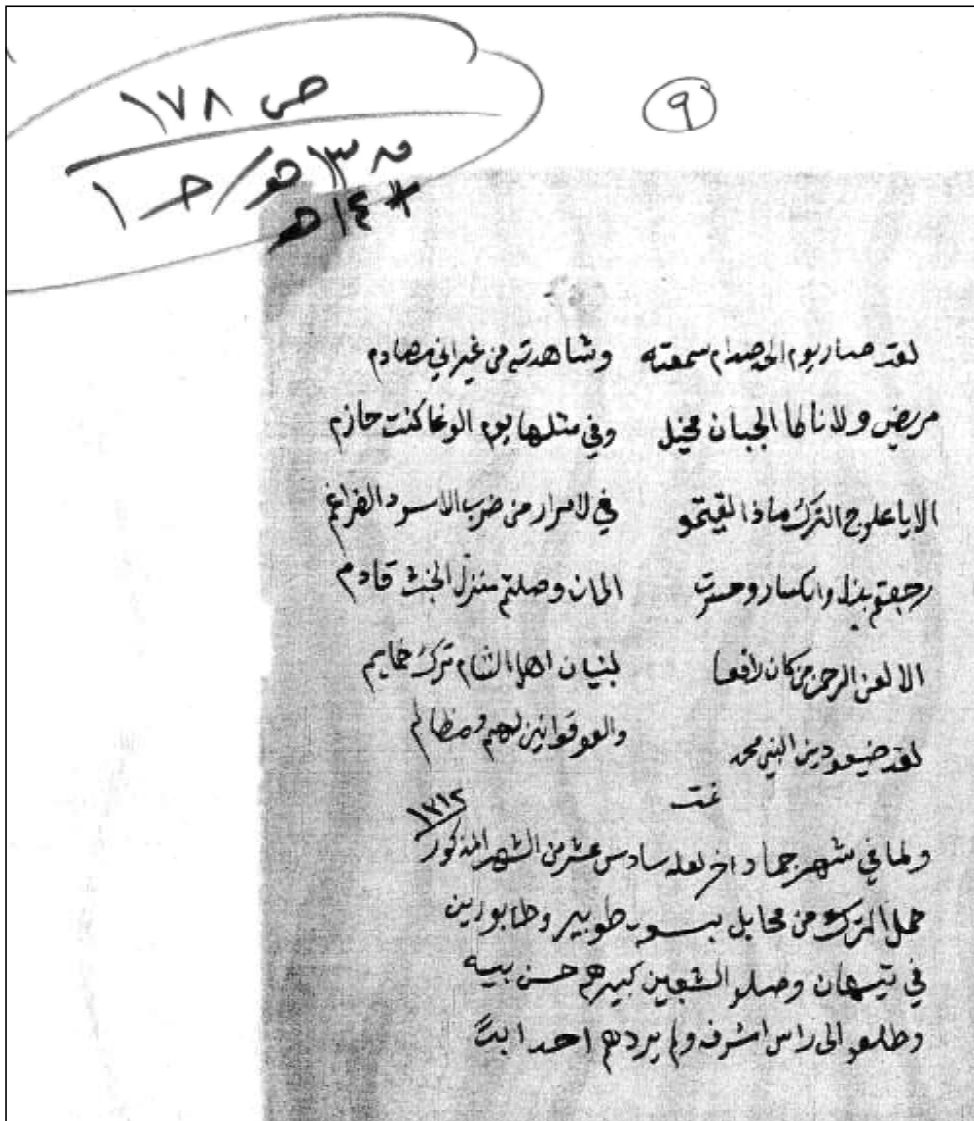 ص ١٧٨
٩
م ١٣ هـ / حـ ١
١٤ هـ
لقد صار يوم الى صدام سمعته وشاهدته من غير اني مصادم
مريض ولا نالها الجبان مخيل وفي مثلها يوم الوغا كنت حازم
الا يا علوج الترك ماذا لقيتمو في لامرار من ضرب الاسود الضراغم
رجعتم بذل وانكسار وحسرت الى ان وصلتم منزل الخبث قادم
الا لعن الرحمن من كان رافعا لبنيان اهل الشام ترك خمايم
لقد ضيعو دين النبي محمد والفو قوانين لهم ومظالم
تمت
١٣١٢
ولما في شهر جماد اخر لعله سادس عشر من الشهر المذكور
حمل الترك من محايل بسوب طوبير وطابورين
في تيهان وصلو الشعبين كبيرهم حسن بيه
وطلعو الى راس اشرف ولم يردهم احد ابتً